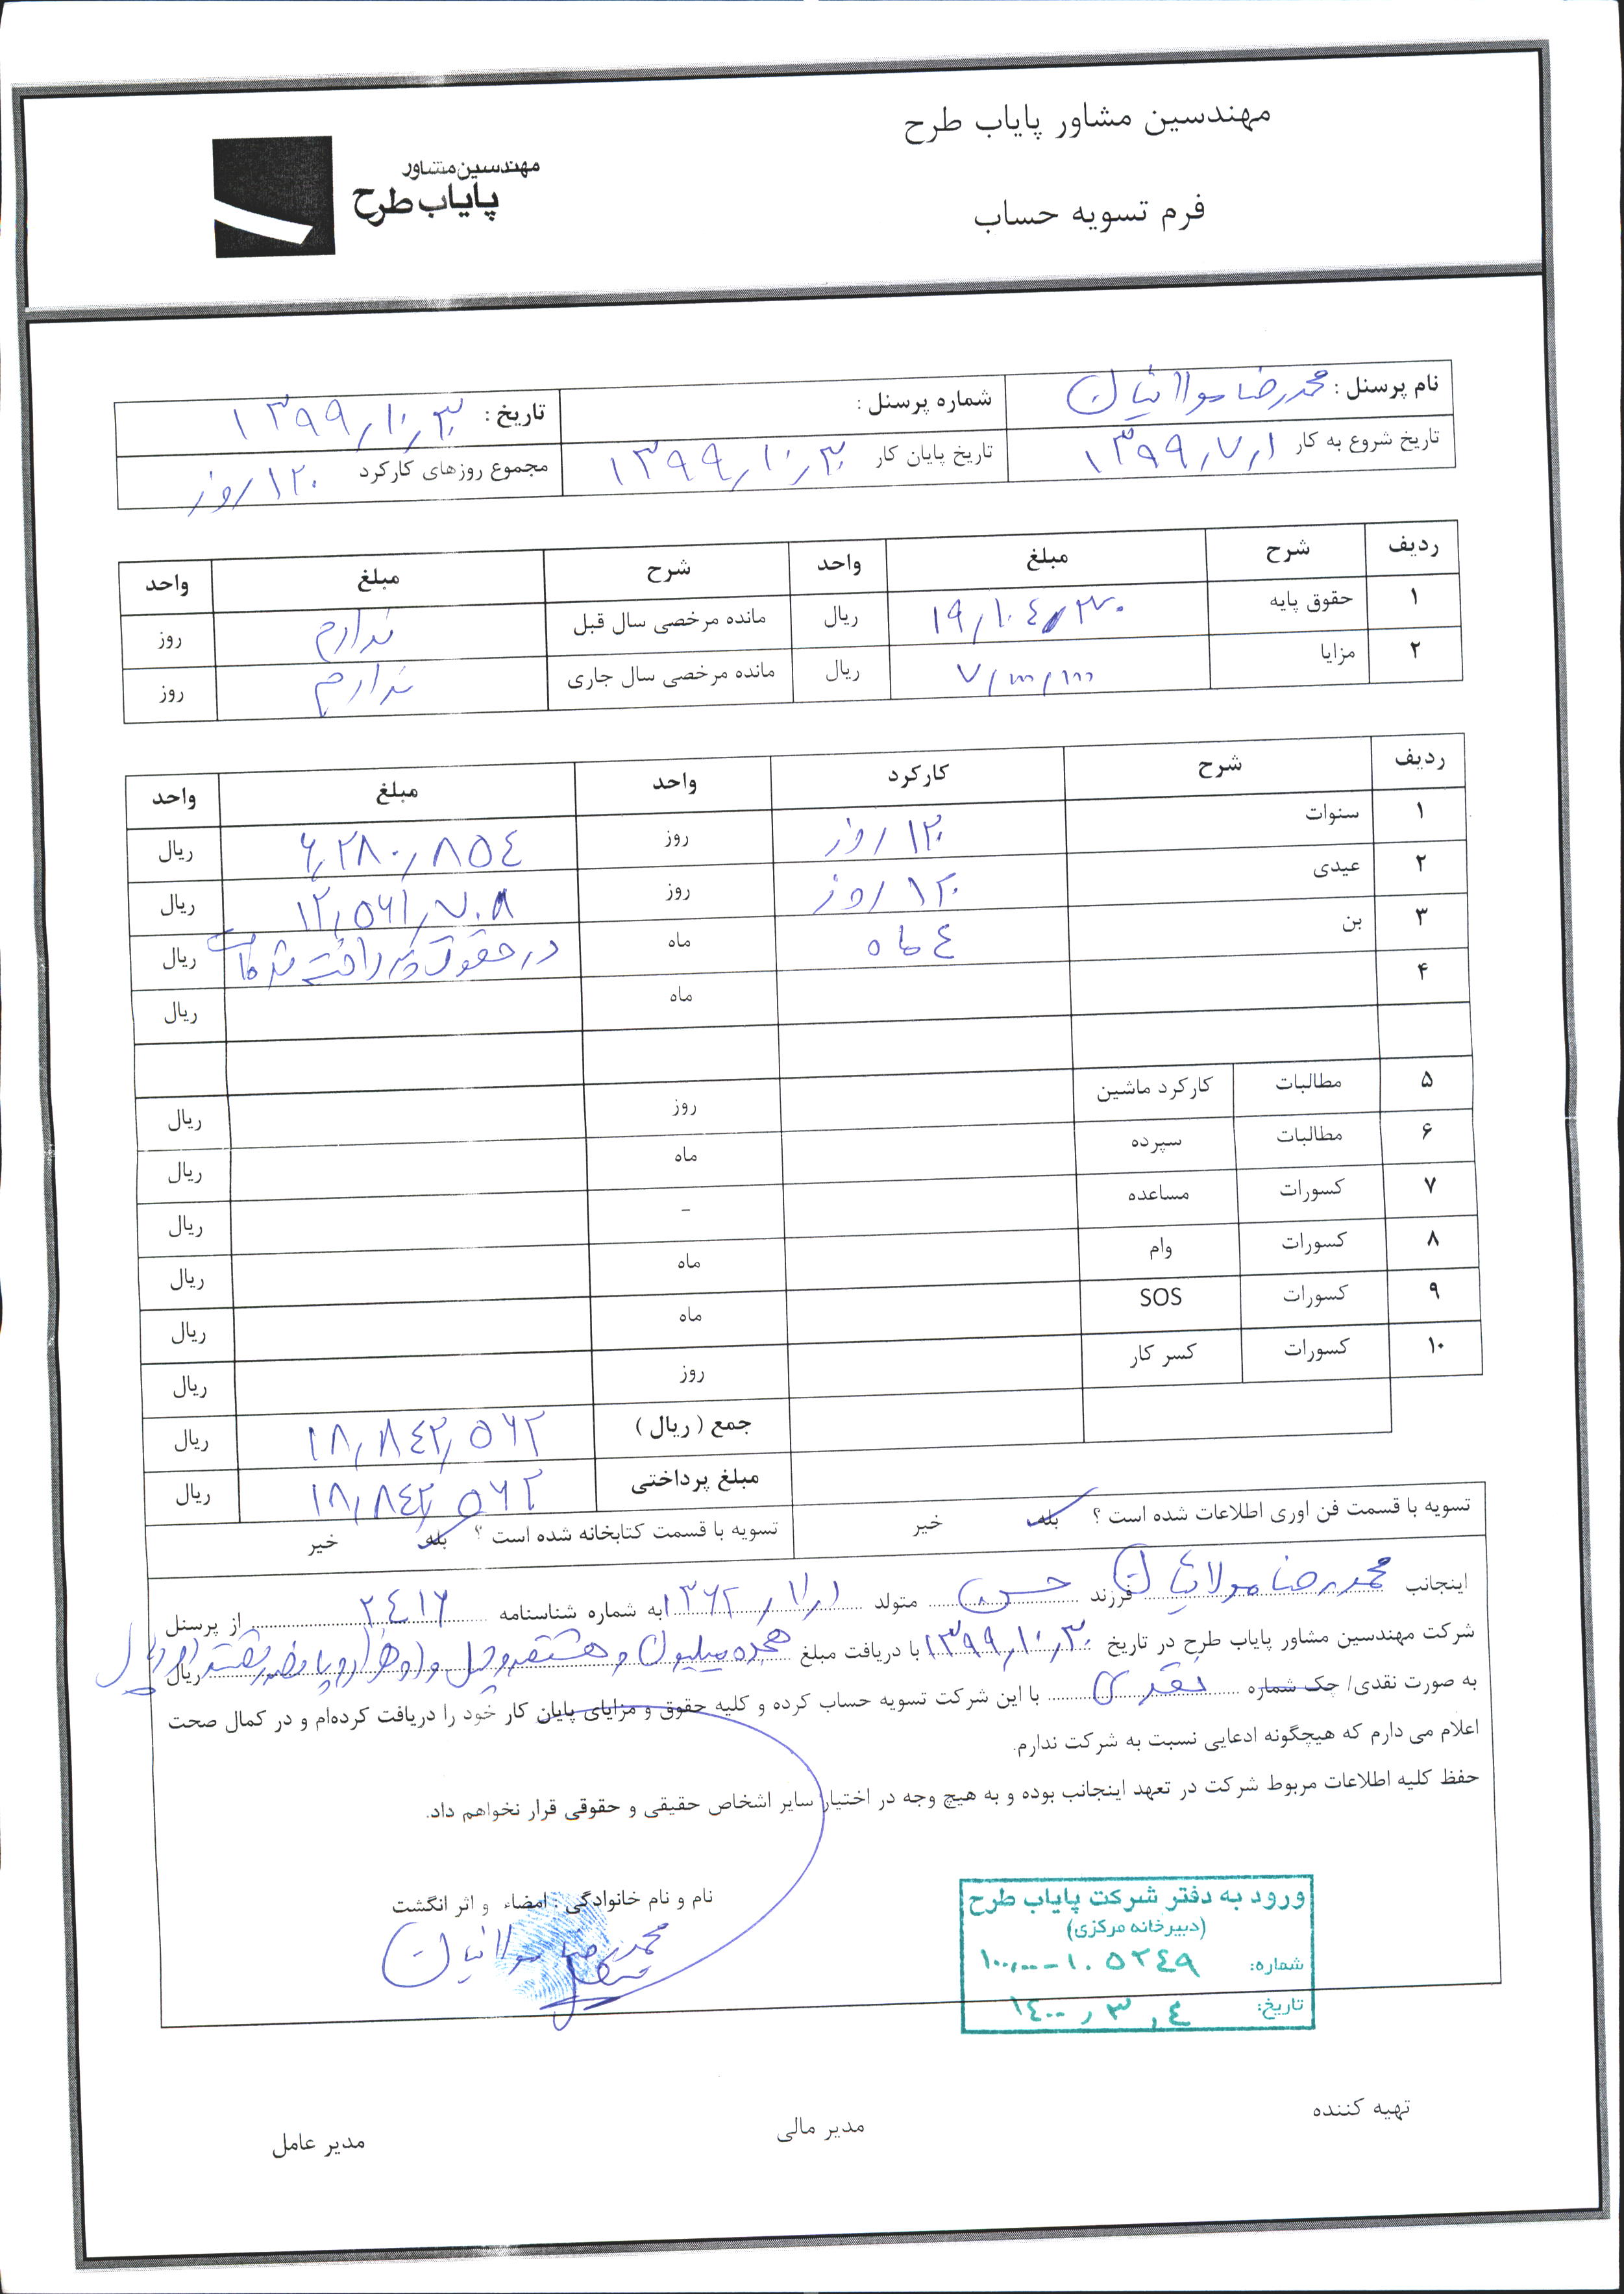 مهندسین مشاور پایاب طرح
مهندسین مشاور
پایاب طرح
فرم تسویه حساب
نام پرسنل : محمدرضا مولائیان شماره پرسنل : تاریخ : ۱۳۹۹٫۱۰٫۳۰
تاریخ شروع به کار ۱۳۹۹٫۷٫۱ تاریخ پایان کار ۱۳۹۹٫۱۰٫۳۰ مجموع روزهای کارکرد ۱۲۰ روز
ردیف شرح مبلغ واحد شرح مبلغ واحد
۱ حقوق پایه ۱۹٫۱۰۴٫۲۷۰ ریال مانده مرخصی سال قبل ندارم روز
۲ مزایا ریال مانده مرخصی سال جاری ندارم روز
ردیف شرح کارکرد واحد مبلغ واحد
۱ سنوات ۱۲۰ روز روز ۶٫۲۸۰٫۸۵۴ ریال
۲ عیدی ۱۲۰ روز روز ۱۲٫۵۶۱٫۷۰۸ ریال
۳ بن ۴ ماه ماه در حقوق پرداخت شده است ریال
۴ ماه ریال
۵ مطالبات کارکرد ماشین روز ریال
۶ مطالبات سپرده ماه ریال
۷ کسورات مساعده – ریال
۸ کسورات وام ماه ریال
۹ کسورات SOS ماه ریال
۱۰ کسورات کسر کار روز ریال
جمع ( ریال ) ۱۸٫۸۴۲٫۵۶۲ ریال
مبلغ پرداختی ۱۸٫۸۴۲٫۵۶۲ ریال
تسویه با قسمت فن اوری اطلاعات شده است ؟ بله خیر تسویه با قسمت کتابخانه شده است ؟ بله خیر
اینجانب محمدرضا مولائیان فرزند حسن متولد ۱۳۶۲٫۷٫۱ به شماره شناسنامه ۲۴۱۶ از پرسنل
شرکت مهندسین مشاور پایاب طرح در تاریخ ۱۳۹۹٫۱۰٫۳۰ با دریافت مبلغ هجده میلیون و هشتصد و چهل و دو هزار و پانصد و شصت و دو ریال ریال
به صورت نقدی/ چک شماره نقدی با این شرکت تسویه حساب کرده و کلیه حقوق و مزایای پایان کار خود را دریافت کرده‌ام و در کمال صحت
اعلام می دارم که هیچگونه ادعایی نسبت به شرکت ندارم.
حفظ کلیه اطلاعات مربوط شرکت در تعهد اینجانب بوده و به هیچ وجه در اختیار سایر اشخاص حقیقی و حقوقی قرار نخواهم داد.
نام و نام خانوادگی : امضاء و اثر انگشت
محمدرضا مولائیان
ورود به دفتر شرکت پایاب طرح
(دبیرخانه مرکزی)
شماره: ۱۰۰٫۰۰-۱۰۵۲۴۹
تاریخ: ۱۴۰۰٫۳٫۴
تهیه کننده مدیر مالی مدیر عامل